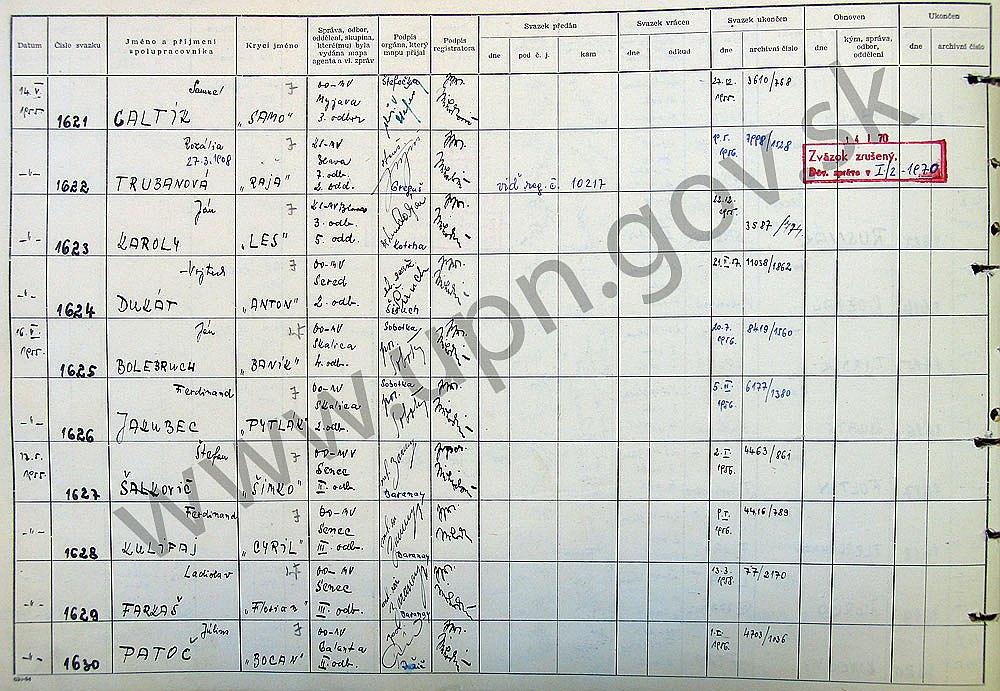 Datum
Číslo svazku
Jméno a příjmení spolupracovníka
Krycí jméno
Správa, odbor, oddělení, skupina, kterému byla vydána mapa agenta a vl. zpráv
Podpis orgána, který mapu přijal
Podpis registratora
Svazek předán
dne
pod č. j.
kam
Svazek vrácen
dne
odkud
Svazek ukončen
dne
archivní číslo
Obnoven
dne
kým, správa, odbor, oddělení
Ukončen
dne
archivní číslo
14. V. 1955
1621
Samuel
GALTÍK
„SAMO"
OO-MV
Myjava
3. odbor
27.12. 1955.
3610/768
1622
Rozália
27.3.1908
TRUBANOVÁ
„RAJA"
7. odb.
2. odd.
Greguš
viď reg. č. 10217
19.5. 1956.
7998/1528
14 I 70
Zväzok zrušený.
1623
Ján
KAROLY
„LES"
3. odb.
5. odd.
Kotrha
22.12.
3587
1624
Vojtech
DUKÁT
„ANTON"
OO-MV
Sereď
2. odb.
11038/1862
1625
Ján
BOLEBRUCH
„BANÍK"
OO-MV
Skalica
4. odb.
Sobotka
20.7. 1956.
8419/1560
1626
Ferdinand
JAKUBEC
„PYTLAK"
OO-MV
Skalica
2. odb.
Sobotka
1956.
6177/1380
1955.
1627
Štefan
ŠALKOVIČ
„ŠIMKO"
OO-MV
Senec
II. odb.
Baranay
2. I. 1956.
4463/861
1628
Ferdinand
KULIFAJ
„CYRIL"
OO-MV
Senec
III. odb.
Baranay
1956.
4416/789
1629
Ladislav
FARKAŠ
„Florian"
OO-MV
Senec
III. odb.
Baranay
13.3. 1958.
77/2170
1630
Július
PATOČ
„BOCAN"
OO-MV
Galanta
II. odb.
1956.
4703/1036
www.upn.gov.sk